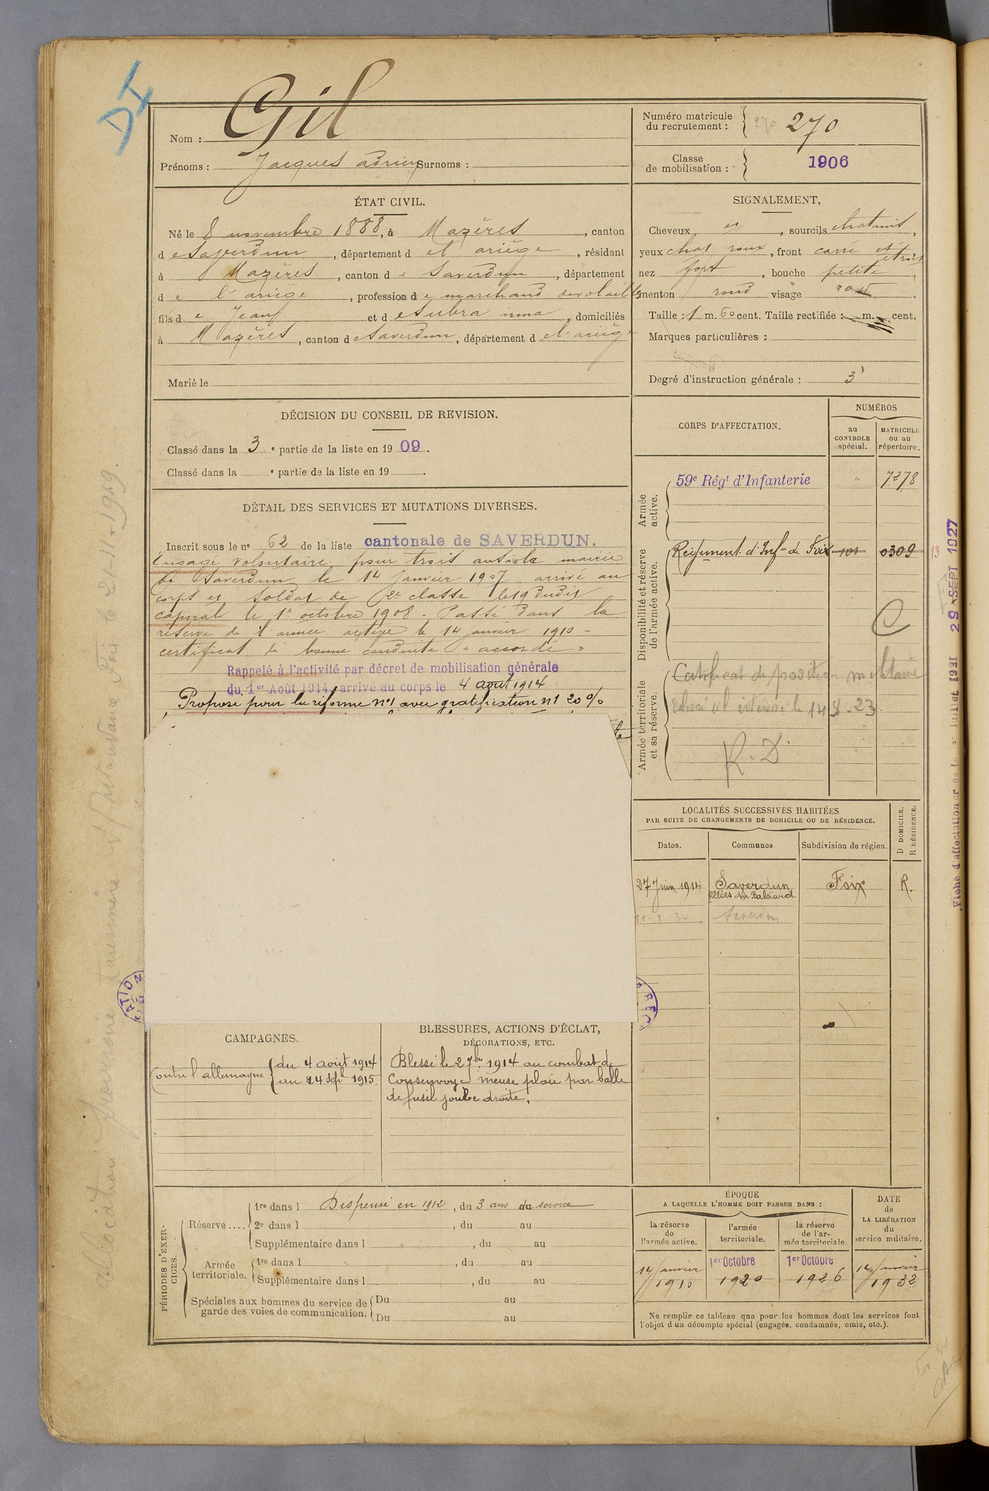 DI
Nom : Gil
Prénoms : Jacques adrien Surnoms :
Numéro matricule du recrutement : 270 270
Classe de mobilisation : 1906
ÉTAT CIVIL.
Né le 8 novembre 1888, à Mazères, canton
de Saverdun, département de l'ariège, résidant
à Mazères, canton de Saverdun, département
de l'ariège, profession de marchand de volailles
fils de Jean et de Subra irma, domiciliés
à Mazères, canton de Saverdun, département de l'ariège
Marié le
SIGNALEMENT.
Cheveux et, sourcils chatains,
yeux chat roux, front carré étroit
nez fort, bouche petite,
menton rond visage rond.
Taille : 1 m. 60 cent. Taille rectifiée : m. cent.
Marques particulières :
Degré d'instruction générale : 3
DÉCISION DU CONSEIL DE REVISION.
Classé dans la 3e partie de la liste en 1909.
Classé dans la e partie de la liste en 19 .
DÉTAIL DES SERVICES ET MUTATIONS DIVERSES.
Inscrit sous le no 62 de la liste cantonale de SAVERDUN.
Engagé volontaire pour trois ans à la mairie
de Saverdun le 14 Janvier 1907 arrivé au
corps et soldat de 2e classe le 19 dudit
caporal le 1er octobre 1908 - Passé dans la
réserve de l'armée active le 14 janvier 1910 -
certificat de bonne conduite "accordé"
Rappelé à l'activité par décret de mobilisation générale
du 1er Août 1914, arrivé au corps le 4 août 1914
Proposé pour la réforme no 1 avec gratification n1 20 %
CORPS D'AFFECTATION.
NUMÉROS
au CONTROLE spécial.
MATRICULE ou au répertoire.
Armée active.
59e Régt d'Infanterie " 7278
Disponibilité et réserve de l'armée active.
Régiment d'Infie de Foix 101 0309
C
Armée territoriale et sa réserve.
Certificat de position militaire
délivré à l'intéressé le 14 8-23
R.D.
29 SEPT 1927
LOCALITÉS SUCCESSIVES HABITÉES
PAR SUITE DE CHANGEMENTS DE DOMICILE OU DE RÉSIDENCE.
Dates. Communes Subdivision de région. D DOMICILE. R RÉSIDENCE.
27 Juin 1914 Saverdun Foix R.
Saverdun
CAMPAGNES.
Contre l'allemagne du 4 août 1914
au 24 Sept 1915
BLESSURES, ACTIONS D'ÉCLAT,
DÉCORATIONS, ETC.
Blessé le 27 1914 au combat de
Consenvoye meuse plaie par balle
de fusil jambe droite.
PÉRIODES D'EXERCICES.
Réserve .... 1re dans l Dispensé en 1912, du 3 ans de service
2e dans l , du au
Supplémentaire dans l , du au
Armée territoriale. 1re dans l , du au
Supplémentaire dans l , du au
Spéciales aux hommes du service de garde des voies de communication. Du au
Du au
ÉPOQUE
A LAQUELLE L'HOMME DOIT PASSER DANS :
la réserve de l'armée active.
l'armée territoriale.
la réserve de l'armée territoriale.
DATE de LA LIBÉRATION du service militaire.
14 Janvier 1910
1er Octobre 1920
1er Octobre 1926
14 Janvier 1932
Ne remplir ce tableau que pour les hommes dont les services font
l'objet d'un décompte spécial (engagés, condamnés, omis, etc.).